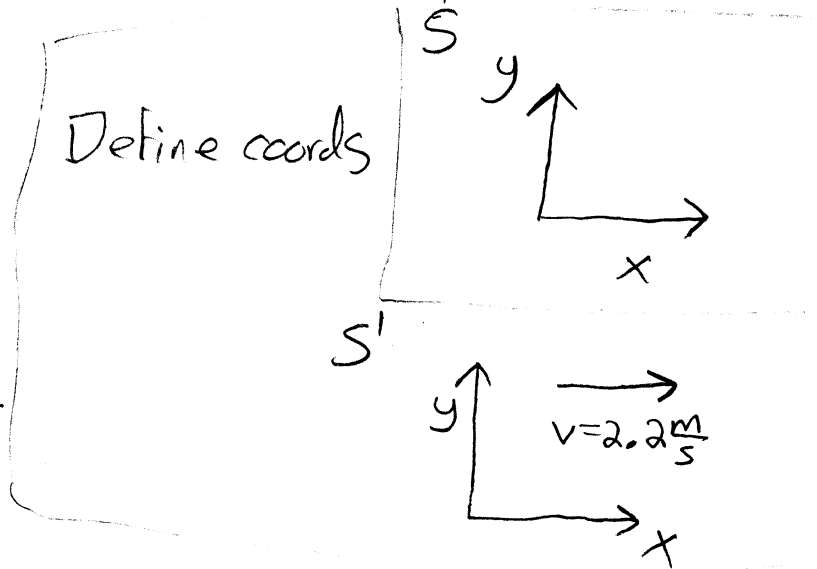 S
y
Define coords
x
S'
y
v=2.2 m/s
x